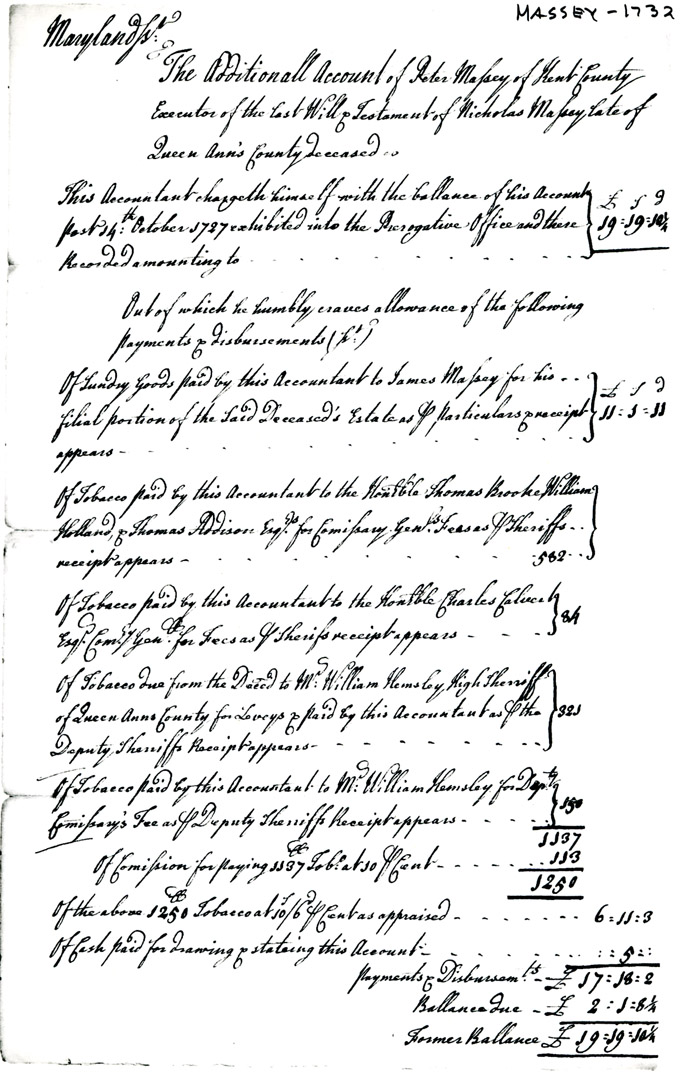 MASSEY - 1732
Maryland ss.t
The Additionall Account of Peter Massey of Kent County
Executor of the Last Will & Testament of Nicholas Massey Late of
Queen Ann's County deceased
This Accountant chargeth himself with the ballance of his Account £ s d
past 14th: October 1727 exhibited into the Prerogative Office and there 19=19=10¼
Recorded amounting to - - - - - -
Out of which he humbly craves allowance of the following
Payments & disbursements (
Of Sundry Goods paid by this Accountant to James Massey for his .. £ s d
filial portion of the Said Deceased's Estate as ⅌ Particulars & receipt 11=1=11
appears -
Of Tobacco paid by this Accountant to the Honrble Thomas Brooke, William
Holland, & Thomas Addison Esqrs. for Comissary Genls. Fees as ⅌ Sheriffs ..
receipt appears - - - - - - 582 ..
Of Tobacco paid by this Accountant to the Honrble Charles Calvert
Esqr. Comry Genll. for Fees as ⅌ Sherifs receipt appears - - - - 84
Of Tobacco due from the Deced to Mr. William Hemsley High Sherriff
of Queen Anns County for Leveys & paid by this Accountant as ⅌ the 321
Deputy Sherriffs Receipt appears - - - - - -
Of Tobacco paid by this Accountant to Mr. William Hemsley for Depty
Comissary's Fee as ⅌ Deputy Sherriffs Receipt appears - - - - 150
1137
Of Comission for paying 1137 ll Tobo. at 10 ⅌ Cent - - - - 113
1250
Of the above 1250 ll Tobacco at 10s/6d ⅌ Cent as appraised - - - - 6=11=3
Of Cash paid for drawing & stateing this Account - - - - : : 5 = :
Payments & Disbursem.ts - £ 17=18=2
Ballance due - £ 2=1=8¼
Former Ballance £ 19=19=10¼